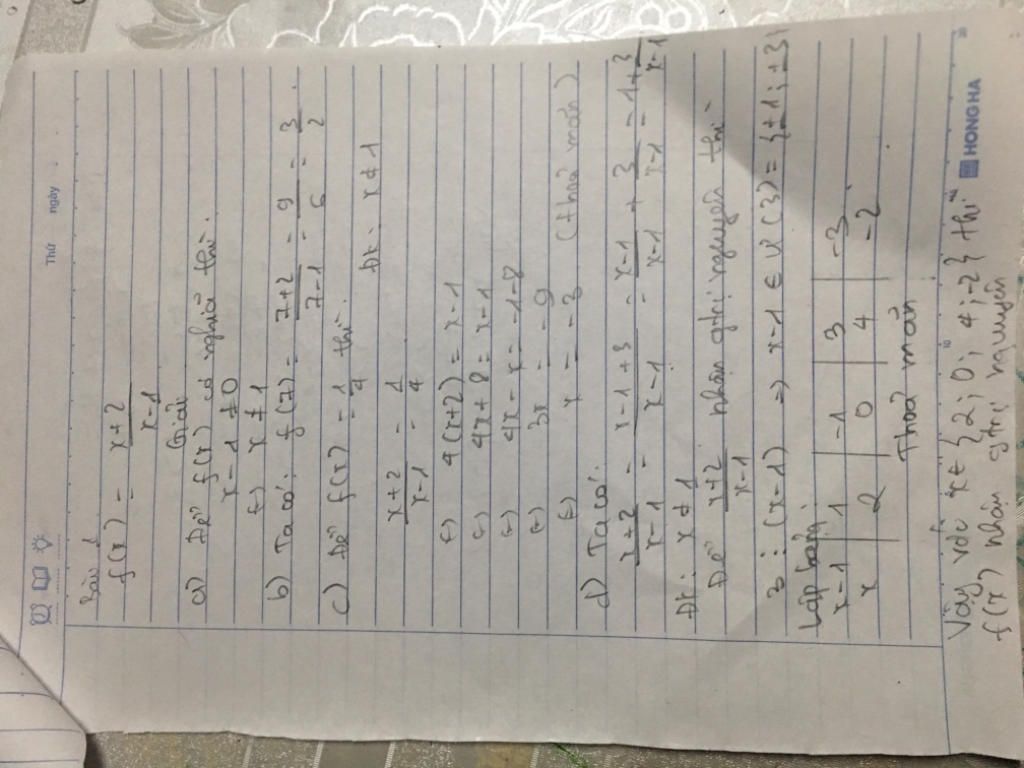 Thứ ngày
Bài 1
f(x) = x+2 / x-1
Giải
a) Để f(x) có nghĩa thì.
x-1 ≠ 0
(=) x ≠ 1
b) Ta có: f(7) = 7+2 / 7-1 = 9 / 6 = 3 / 2
c) Để f(x) = 1/4 thì.
x+2 / x-1 = 1 / 4 Đk: x ≠ 1
(=) 4(x+2) = x-1
(=) 4x+8 = x-1
(=) 4x-x = -1-8
(=) 3x = -9
(=) x = -3 (thoả mãn)
d) Ta có:
x+2 / x-1 = x-1+3 / x-1 = x-1 / x-1 + 3 / x-1 = 1+ 3 / x-1
Đk: x ≠ 1
Để x+2 / x-1 nhận giá trị nguyên thì
3 ⋮ (x-1) => x-1 ∈ Ư(3) = {±1; ±3}
Lập bảng.
x-1 | 1 | -1 | 3 | -3
x | 2 | 0 | 4 | -2
Thoả mãn
Vậy với x ∈ {2; 0; 4; -2} thì
f(x) nhận giá trị nguyên
HONG HA